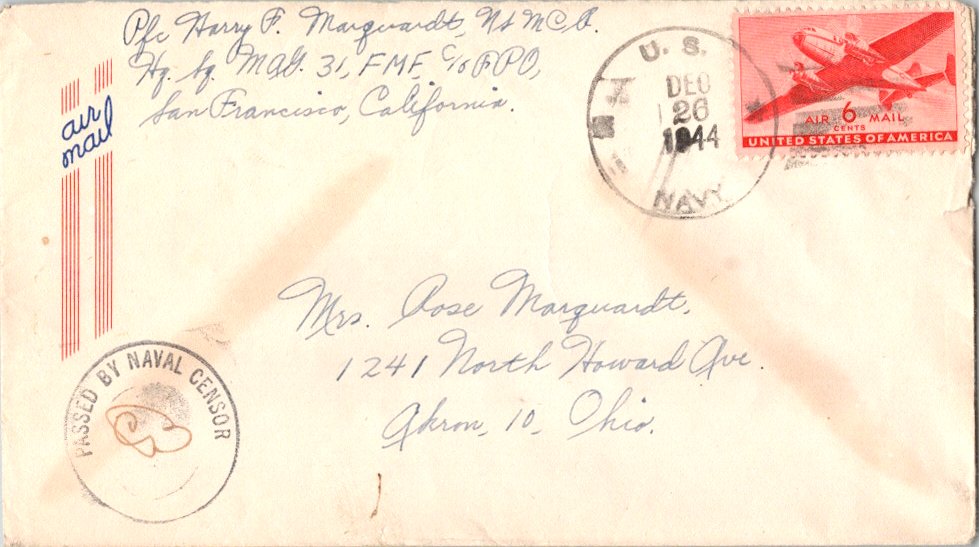 Pfc Harry F. Marquardt, USMCR.
Hq. Sq. MAG. 31, FMF, C/o FPO,
San Francisco, California.
air
mail
U. S.
DEC
26
1944
NAVY
AIR 6 MAIL
CENTS
UNITED STATES OF AMERICA
Mrs. Rose Marquardt,
1241 North Howard Ave.
Akron, 10, Ohio.
PASSED BY NAVAL CENSOR